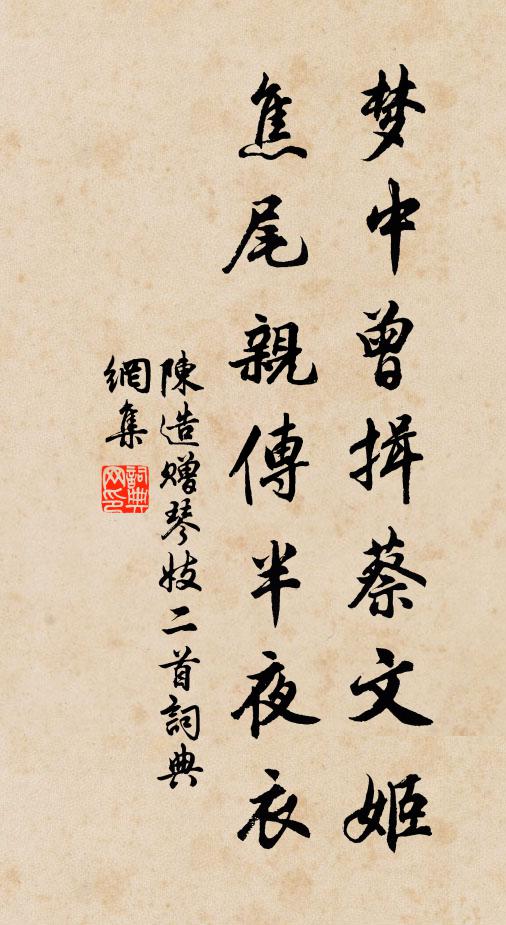 梦中曾揖蔡文姬
焦尾親傳半夜衣
陳造贈琴妓二首詞典
網集
詞典網印